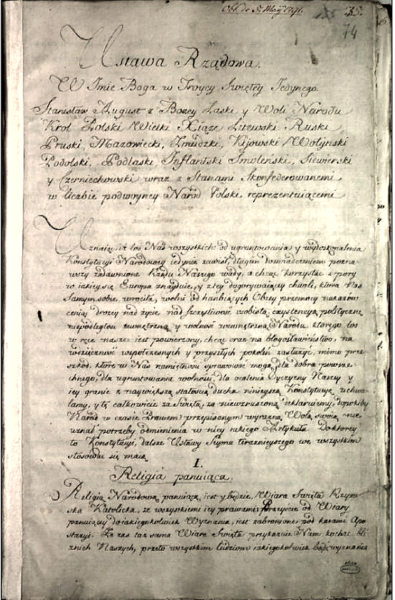 Ustawa Rządowa.
W Imie Boga w Troycy Swiętey Jedynego
Stanisław August z Bozey Łaski y Woli Narodu
Krol Polski Wielki Xiąże Litewski Ruski
Pruski, Mazowiecki, Zmudzki, Kijowski Wołynski
Podolski, Podlaski Inflantski Smolenski, Siewierski
y Czerniechowski wraz z Stanami Skonfederowanemi
w liczbie podwoyney Narod Polski reprezentuiącemi
Uznaiąc, iż los Nas wszystkich od ugruntowania y wydoskonalenia
Konstytucyi Narodowey iedynie zawisł, długim doswiadczeniem pozna
wszy zadawnione Rządu Naszego wady, a chcąc korzystać z pory
w iakiey się Europa znayduie, y z tey dogorywaiącey chwili, ktora Nas
Samym sobie wrociła, wolni od hanbiących Obcey przemocy nakazow
ceniąc drożey nad życie nad szczęśliwość osobistą, exystencyą polityczną
niepodległość zewnętrzną, y wolność wewnętrzną Narodu, ktorego los
w ręce nasze iest powierzony, chcąc oraz na błogosławienstwo, na
wdzięczność wspołczesnych y przyszłych pokolen zasłużyć, mimo prze
szkod, ktore w Nas namiętności sprawować mogą, dla dobra powsze
chnego, dla ugruntowania wolności, dla ocalenia Oyczyzny Naszey y
iey granic z naywiększą stałością ducha, ninieyszą Konstytucyę uchwa
lamy, y tę całkowicie za Swiętą, za niewzruszoną deklaruiemy, dopokiby
Narod w czasie Prawem przepisanym wyraźną Wolą swoią nie
uznał potrzeby odmienienia w niey iakiego Artykułu. Do ktorey
to Konstytucyi, dalsze Ustawy Seymu teraznieyszego we wszystkim
stosować się maią.
I.
Religia panuiąca.
Religią Narodową panuiącą, iest y będzie, Wiara Swięta Rzym
ska Katolicka, ze wszystkiemi iey prawami, przeyscie od Wiary
panuiącey do iakiegokolwiek Wyznania, iest zabronione pod karami Apo
stazyi. Ze zas taż sama Wiara Swięta przykazuie Nam kochać bli
znich Naszych, przeto wszystkim ludziom iakiegokolwiek bądz wyznania